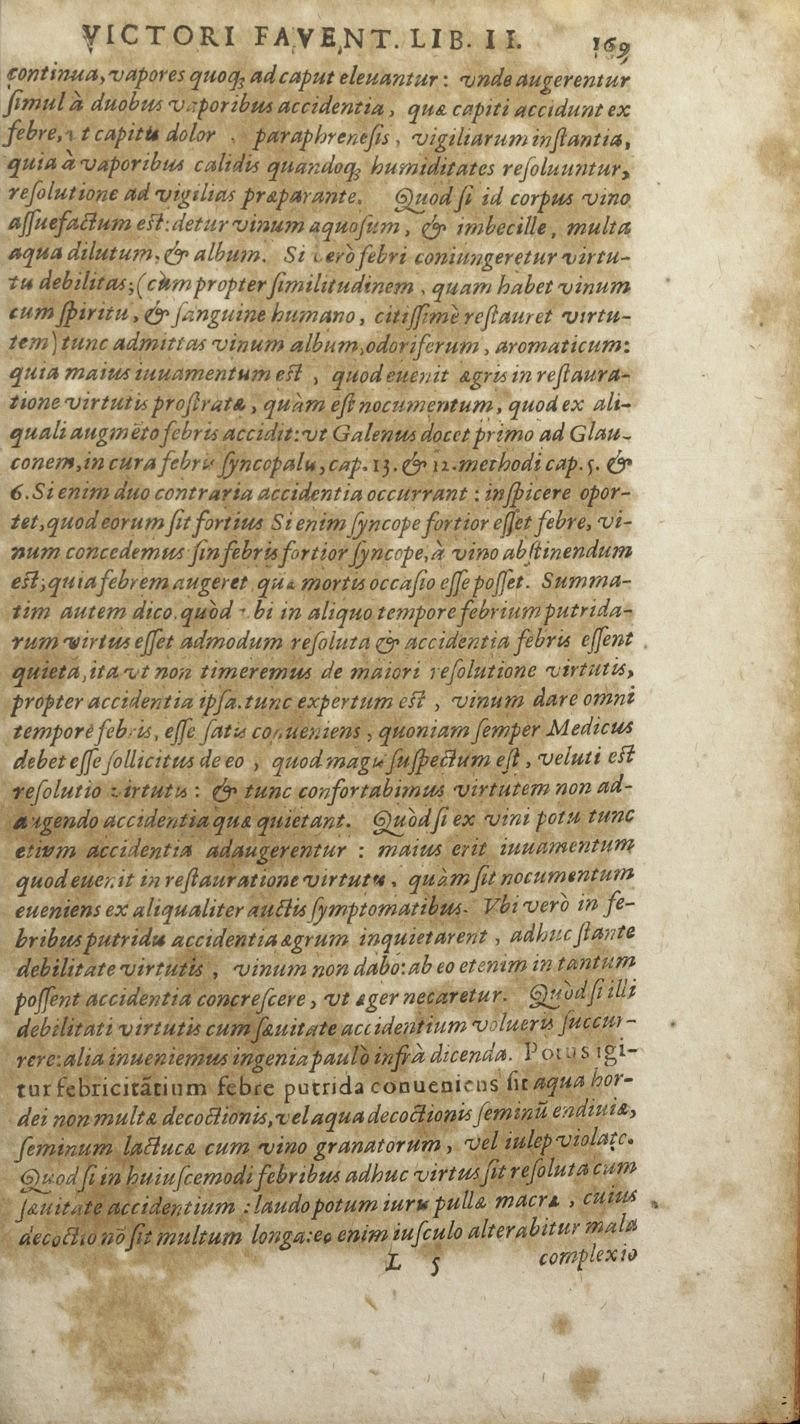 VICTORI FAVENT. LIB. II. 169
continua, vapores quoq; ad caput eleuantur: vnde augerentur
ſimul à duobus vaporibus accidentia, quæ capiti accidunt ex
febre, vt capitis dolor, paraphreneſis, vigiliarum inſtantia,
quia à vaporibus calidis quandoq; humiditates reſoluuntur,
reſolutione ad vigilias præparante. Quod ſi id corpus vino
aſſuefactum eſt: detur vinum aquoſum, & imbecille, multa
aqua dilutum, & album. Si verò febri coniungeretur virtu-
tis debilitas; (cùm propter ſimilitudinem, quam habet vinum
cum ſpiritu, & ſanguine humano, citiſſimè reſtauret virtu-
tem) tunc admittas vinum album, odoriferum, aromaticum:
quia maius iuuamentum eſt, quod euenit ægris in reſtaura-
tione virtutis proſtratæ, quàm eſt nocumentum, quod ex ali-
quali augmēto febris accidit: vt Galenus docet primo ad Glau-
conem, in cura febris ſyncopalis, cap. 13. & 12. methodi cap. 5. &
6. Si enim duo contraria accidentia occurrant: inſpicere opor-
tet, quod eorum ſit fortius Si enim ſyncope fortior eſſet febre, vi-
num concedemus ſin febris fortior ſyncope, à vino abſtinendum
eſt; quia febrem augeret quæ mortis occaſio eſſe poſſet. Summa-
tim autem dico. quòd vbi in aliquo tempore febrium putrida-
rum virtus eſſet admodum reſoluta & accidentia febris eſſent
quieta, ita vt non timeremus de maiori reſolutione virtutis,
propter accidentia ipſa. tunc expertum eſt, vinum dare omni
tempore febris, eſſe ſatis conueniens, quoniam ſemper Medicus
debet eſſe ſollicitus de eo, quod magis ſuſpectum eſt, veluti eſt
reſolutio virtutis: & tunc confortabimus virtutem non ad-
augendo accidentia quæ quietant. Quòd ſi ex vini potu tunc
etiam accidentia adaugerentur: maius erit iuuamentum
quod euenit in reſtauratione virtutis, quàm ſit nocumentum
eueniens ex aliqualiter auctis ſymptomatibus. Vbi verò in fe-
bribus putridis accidentia ægrum inquietarent, adhuc ſtante
debilitate virtutis, vinum non dabo: ab eo etenim in tantum
poſſent accidentia concreſcere, vt æger necaretur. Quòd ſi illi
debilitati virtutis cum ſæuitate accidentium volueris ſuccur-
rere: alia inueniemus ingenia paulò infrà dicenda. Potus igi-
tur febricitātium febre putrida conueniens ſit aqua hor-
dei non multæ decoctionis, vel aqua decoctionis ſeminū endiuiæ,
ſeminum lactucæ cum vino granatorum, vel iulep violatc.
Quod ſi in huiuſcemodi febribus adhuc virtus ſit reſoluta cum
ſæuitate accidentium: laudo potum iuris pullæ macræ, cuius
decoctio nō ſit multum longa: eo enim iuſculo alterabitur mala
L 5 complexio